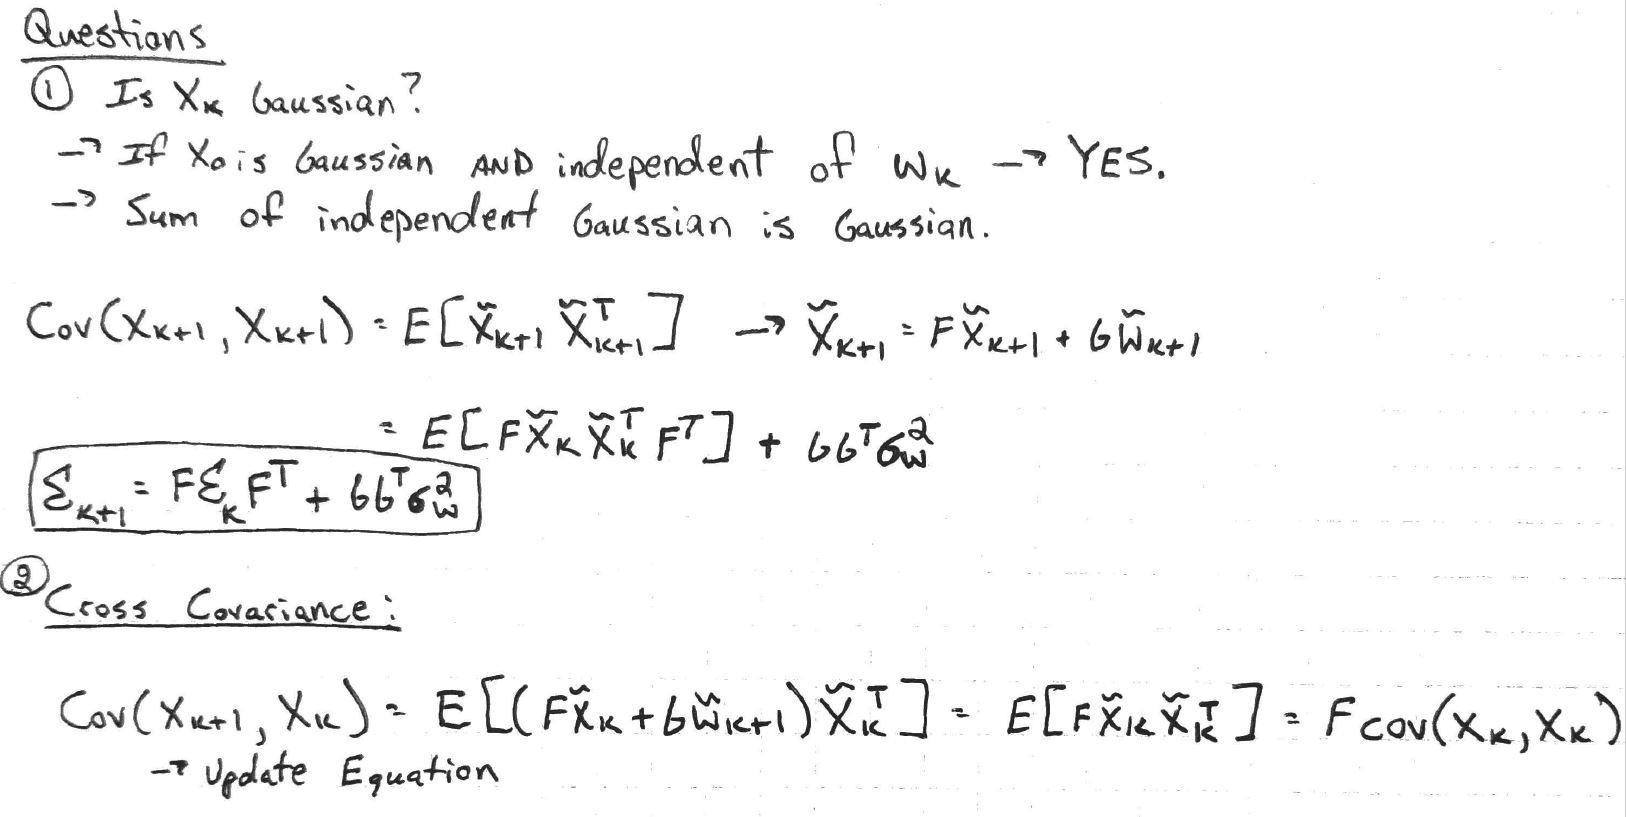 Questions
① Is X_K Gaussian?
→ If X_0 is Gaussian AND independent of W_K → YES.
→ Sum of independent Gaussian is Gaussian.
Cov(X_{K+1}, X_{K+1}) = E[X̃_{K+1} X̃_{K+1}^T] → X̃_{K+1} = FX̃_{K+1} + GW̃_{K+1}
= E[FX̃_K X̃_K^T F^T] + GG^Tσ_W^2
Σ_{K+1} = FΣ_K F^T + GG^Tσ_W^2
② Cross Covariance:
Cov(X_{K+1}, X_K) = E[(FX̃_K + GW̃_{K+1})X̃_K^T] = E[FX̃_K X̃_K^T] = F cov(X_K, X_K)
→ Update Equation